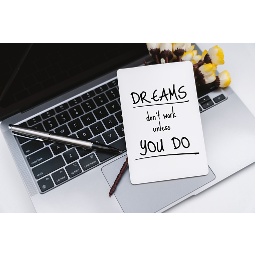 DREAMS
don't work
unless
YOU DO